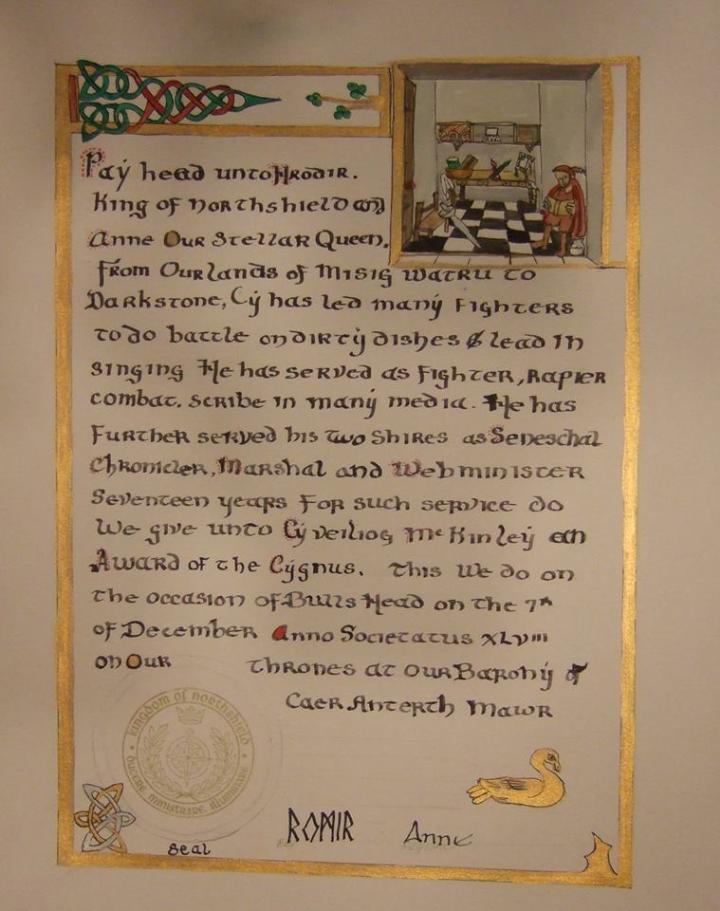 Pay head unto Hrodir.
King of Northshield and
Anne Our Stellar Queen.
From Our lands of Misig Watru to
Darkstone, Cy has led many Fighters
to do battle on dirty dishes & lead in
singing He has served as Fighter, Rapier
combat. scribe in many media. He has
Further served his two Shires as Seneschal
Chronicler, Marshal and Webminister
Seventeen years For such service do
We give unto Cyveiliog McKinley an
Award of the Cygnus. This We do on
the occasion of Bulls Head on the 7th
of December Anno Societatus XLVIII
on Our thrones at Our Barony of
Caer Anterth Mawr
Kingdom of Northshield
Ducere, Ministrare, Illuminare
Seal
Anne